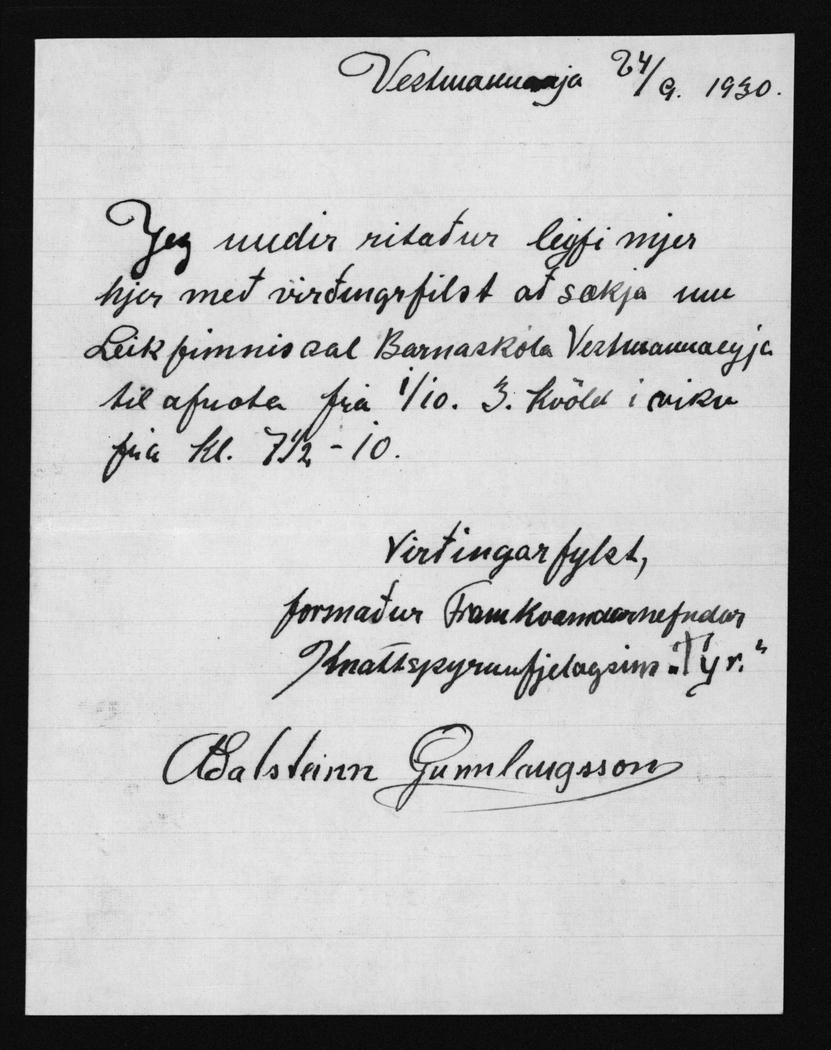 Vestmannaeyja 24/9. 1930.
Jeg undir ritaður leyfi mjer
hjer með virðingrfilst að sækja um
Leikfimnissal Barnaskóla Vestmannaeyja
til afnota frá 1/10. 3. kvöld i viku
frá kl. 7 1/2 - 10.
Virðingarfylst,
formaður Framkvæmdarnefndar
Knattspyrnufjelagsins „Týr."
Aðalsteinn Gunnlaugsson